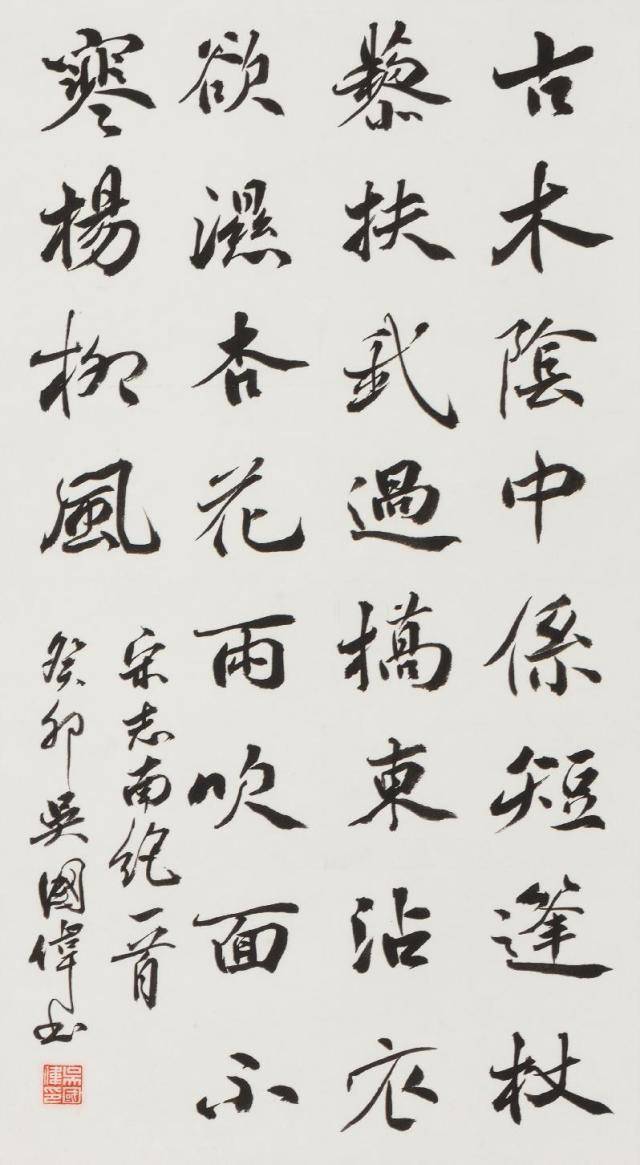 古木陰中係短篷杖
藜扶我過橋東沾衣
欲濕杏花雨吹面不
寒楊柳風
宋志南絕一首
癸卯吳國偉书
吳國偉印